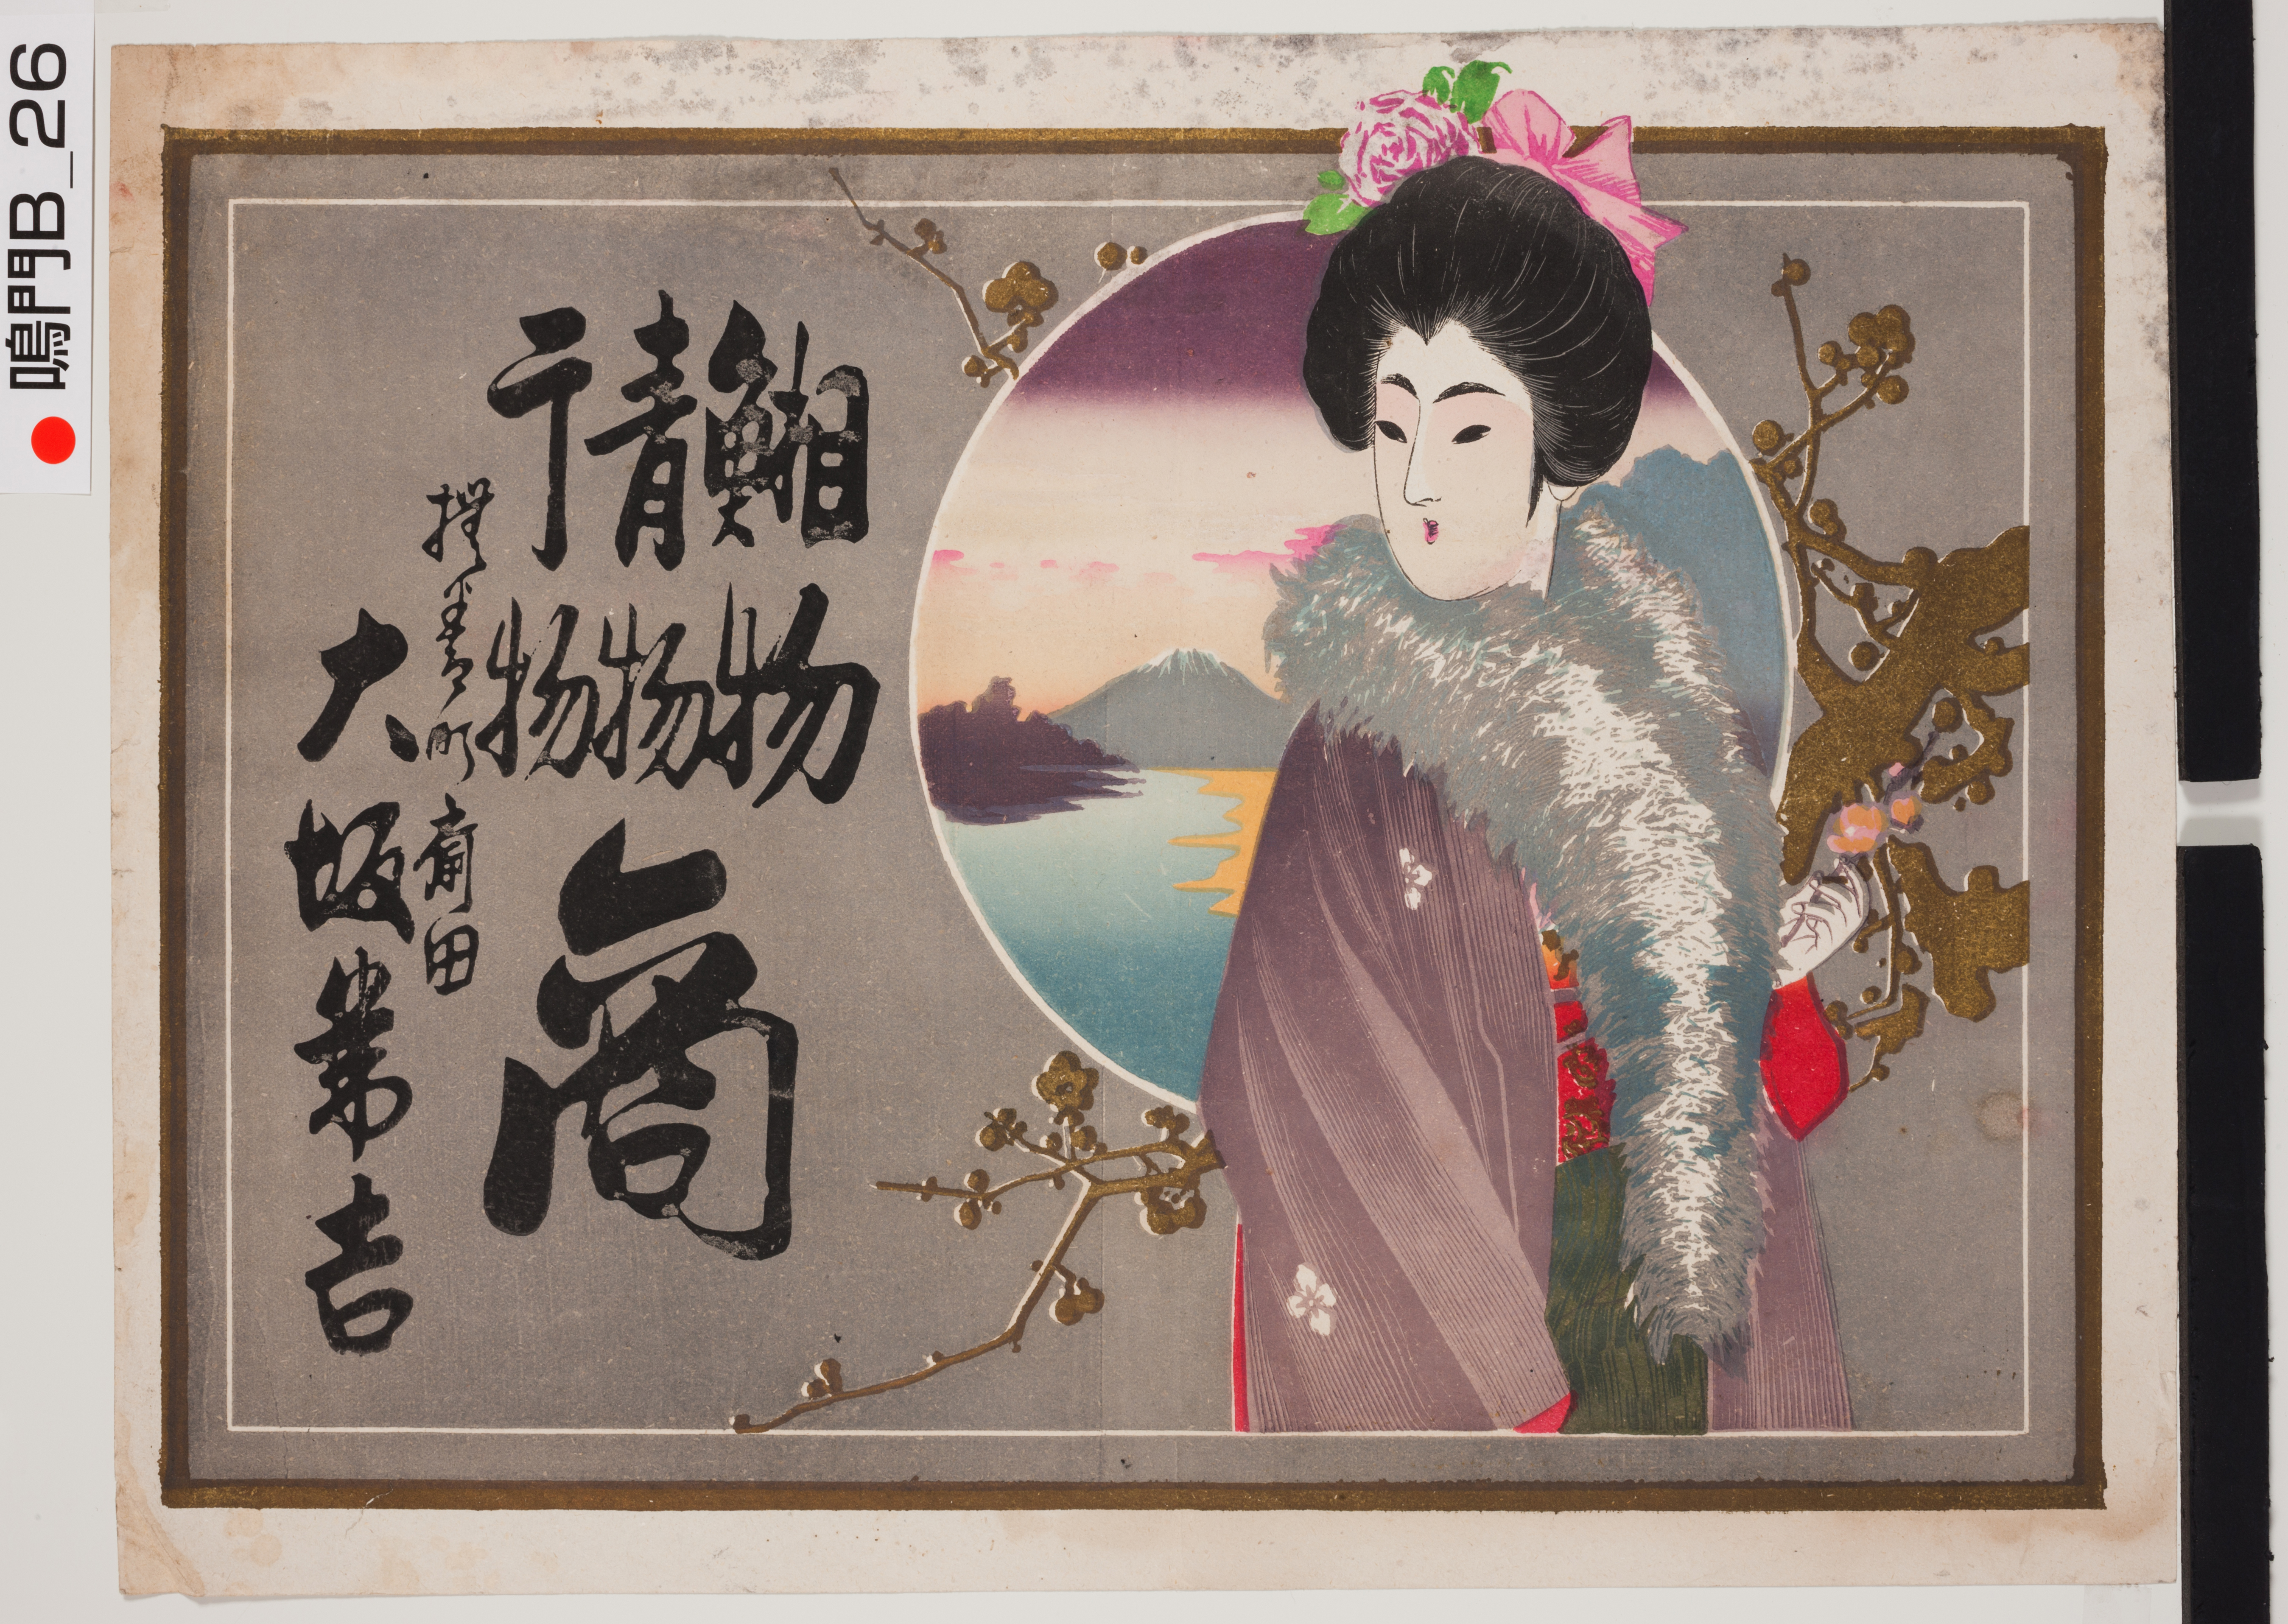 鳴門B_26
物
青物
干物
商
撫養町斎田
大坂 吉